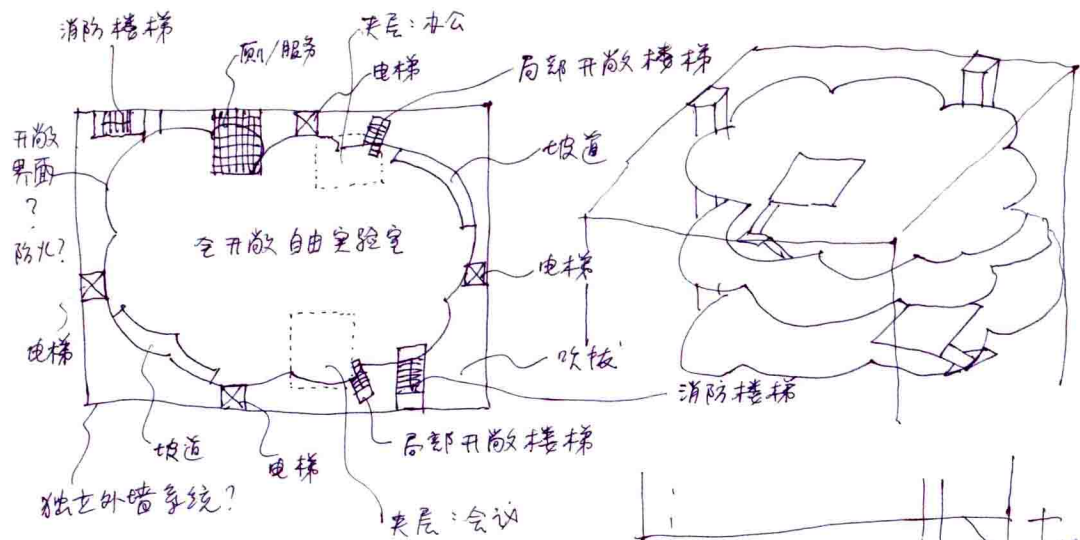 消防楼梯
厕/服务
夹层:办公
电梯
局部开敞楼梯
开敞
界面
?
防火?
坡道
全开敞自由实验室
电梯
电梯
吹拔
消防楼梯
坡道
电梯
局部开敞楼梯
独立外墙系统?
夹层:会议